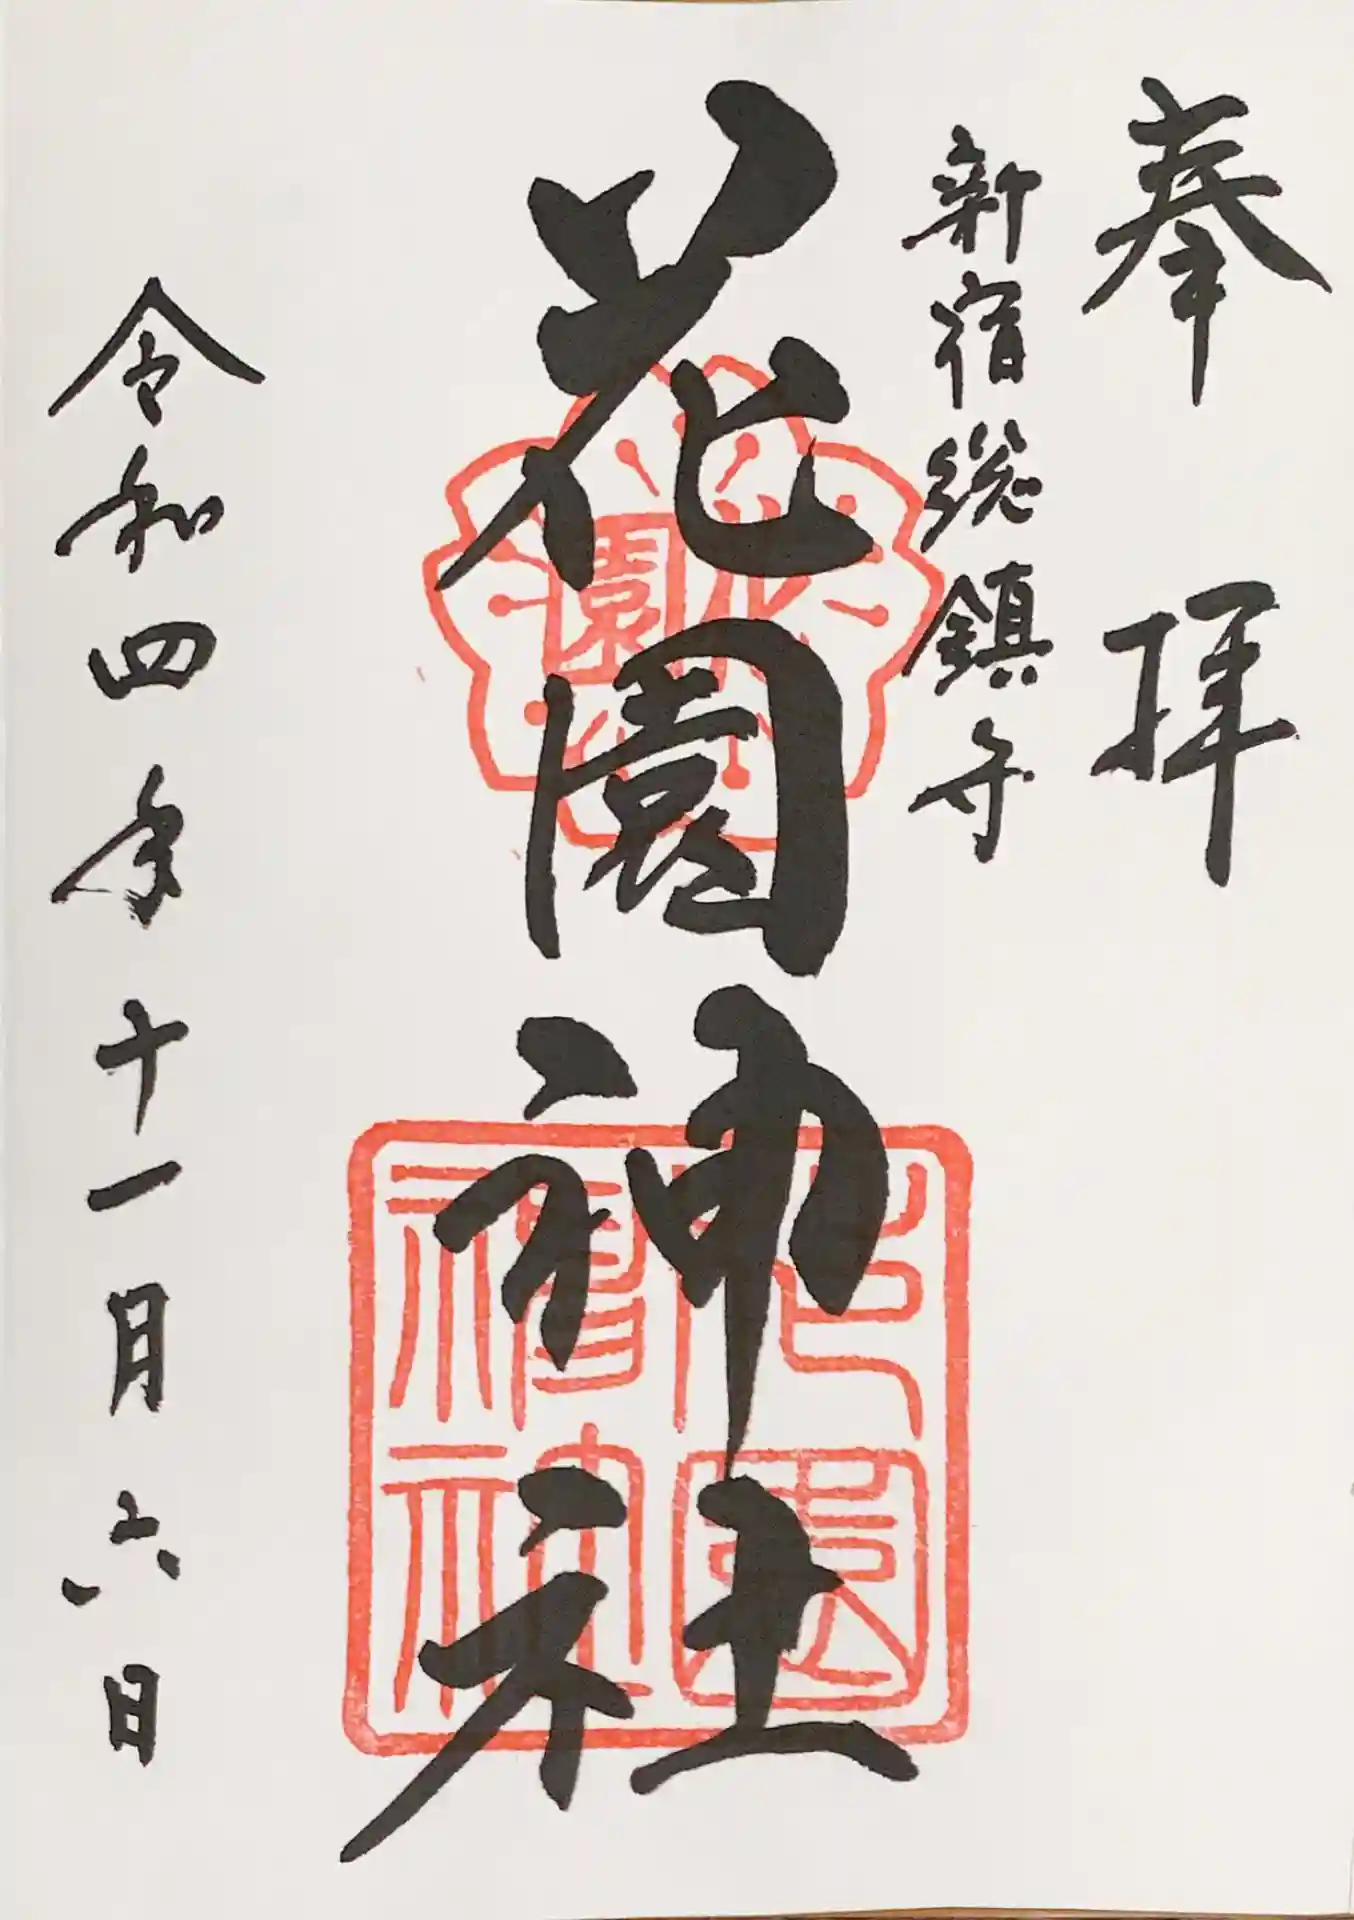 奉拝
新宿総鎮守
花園神社
令和四年十一月六日
花園
花園神社